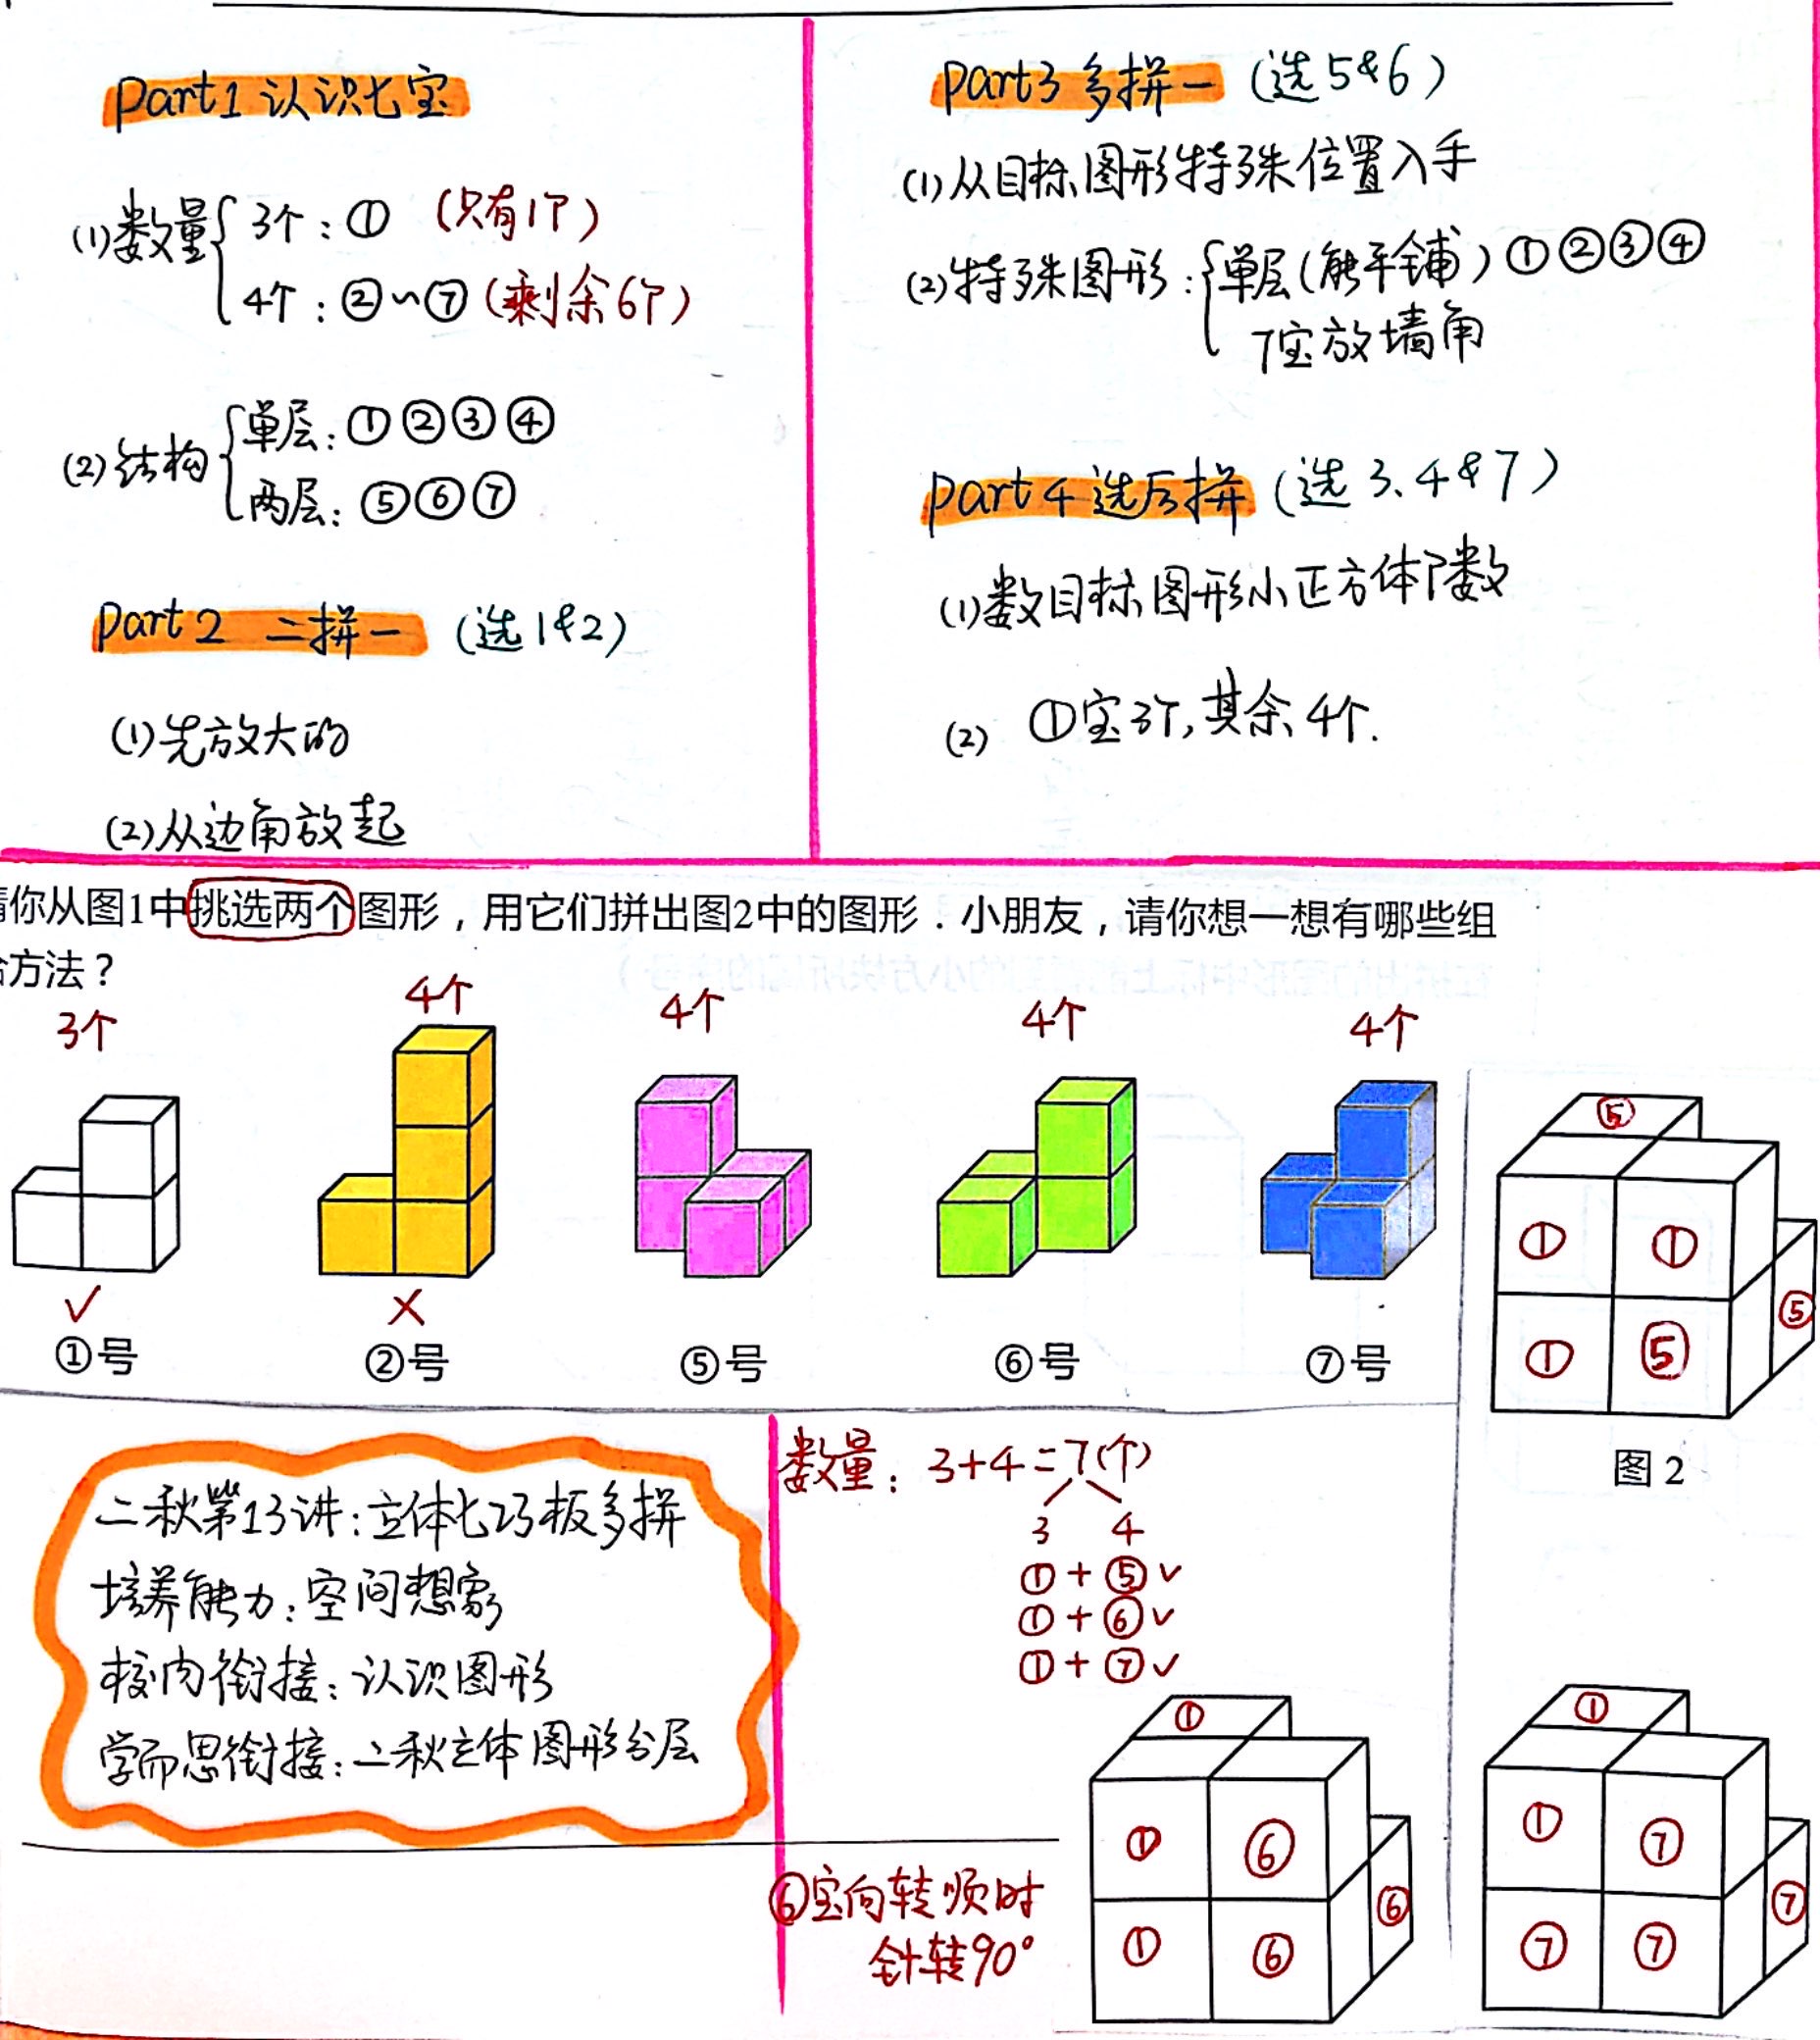 Part1 认识七宝
(1)数量 3个:① (只有1个)
4个:②~⑦(剩余6个)
(2)结构 单层:①②③④
两层:⑤⑥⑦
Part2 二拼一 (选1&2)
(1)先放大的
(2)从边角放起
Part3 多拼一 (选5&6)
(1)从目标图形特殊位置入手
(2)特殊图形:单层(能平铺)①②③④
7宝放墙角
Part4 选后拼 (选3、4&7)
(1)数目标图形小正方体个数
(2) ①宝3个,其余4个.
你从图1中挑选两个图形,用它们拼出图2中的图形.小朋友,请你想一想有哪些组
方法?
3个 4个 4个 4个 4个
✓ ×
①号 ②号 ⑤号 ⑥号 ⑦号
⑤
① ①
⑤
① ⑤
图2
二秋第13讲:立体七巧板多拼
培养能力:空间想象
校内衔接:认识图形
学而思衔接:二秋立体图形分层
数量:3+4=7(个)
3 4
①+⑤✓
①+⑥✓
①+⑦✓
⑥宝向转顺时
针转90°
①
① ⑥
⑥
① ⑥
①
① ⑦
⑦
⑦ ⑦